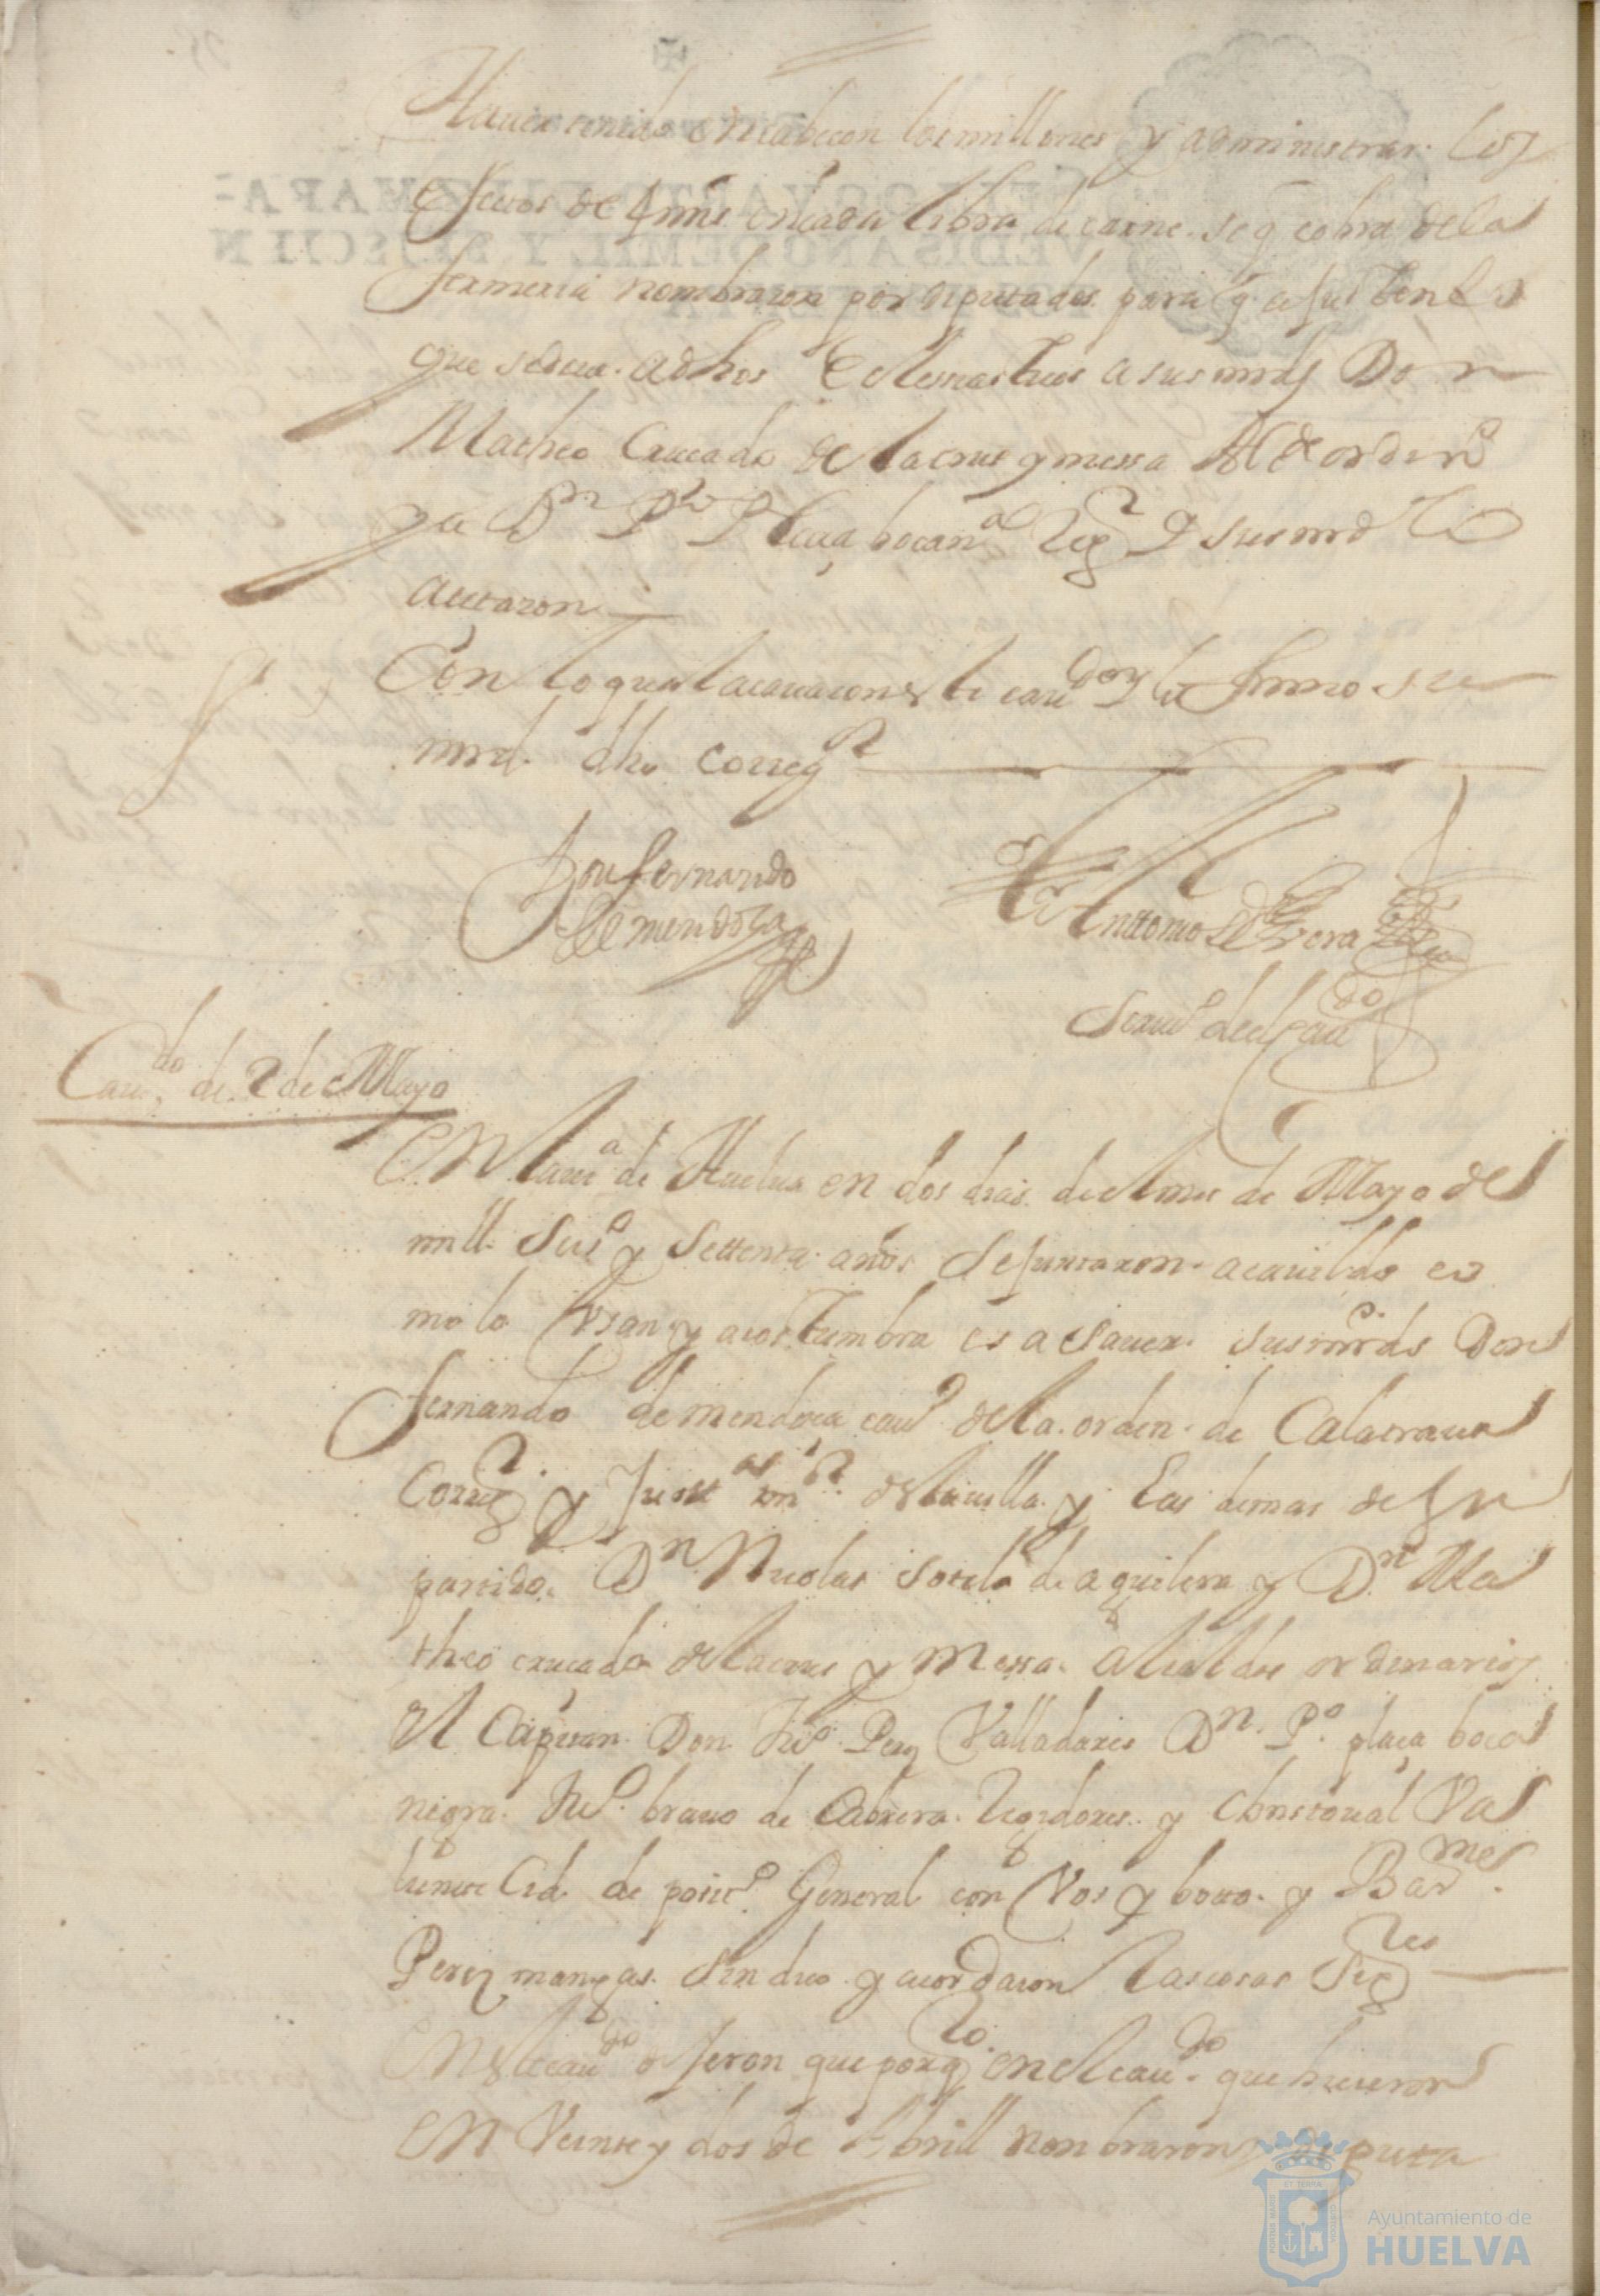 Hauer tenido encabecon los millones y administrar los
efectos de 4 mrs en cada libra de carne. se q cobra de la
fermeria nombraron por diputados para q ajusten lo
que sedeua. a dhos Eclesiasticos a sus mrds Don
Matheo Cruçado de la crus y messa Alde ordinº
ya Dn Pº Plaça bocanª Regr y sus mrd lo
acetaron
Con lo qual acauaron este caudo y lo firmo su
mrd. dho Corregr
Don fernando
de mendoça
Antonio de Vera
Scriuº de el caudo
Caudo de 2 de Mayo
En la uiª de Huelua en dos dias de el mes de Mayo de
mill Seisº y Settenta años se juntaron a cauildo co
mo lo Vsan y acostumbra es a sauer. sus mrds Don
fernando de mendoça cauº de la orden de Calatraua
Corregr y Justª mr de la uilla y las demas de su
partido. Dn Nicolas sotelo de aguilera y Dn Ma
theo cruçado de la crus y Messa. alcaldes ordinarios
el Capitan Don Juº Perez Valladares Dn. Pº. plaça boca
negra. Juº. brauo de Cabrera. Regidores. y Christoual Va
liente Cid. de positº General con Vos y boto. y Barme.
Perez mangas. Sindico y acordaron las cosas Sigtes
En este caudo dixeron que por qto. en el caudo. que hicieron
En Veinte y dos de Abrill nonbraron diputa
Ayuntamiento de
HUELVA